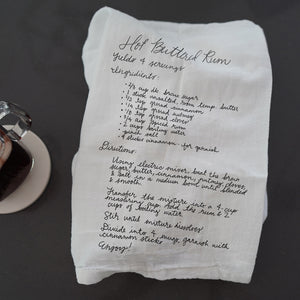 Hot Buttered Rum
Yields 4 servings
Ingredients:
- 2/3 cup dk brown sugar
- 1 stick unsalted, room temp. butter
- 1/4 tsp ground cinnamon
- 1/4 tsp ground nutmeg
- 1/8 tsp ground cloves
- 3/4 cup spiced rum
- 2 cups boiling water
- pinch salt
- 4 sticks cinnamon - for garnish
Directions:
Using electric mixer, beat the brown
sugar, butter, cinnamon, nutmeg, cloves
& salt in a medium bowl until blended
& smooth.
Transfer the mixture into a 4 cup
measuring cup. Add the rum & 2
cups of boiling water.
Stir until mixture dissolves
Divide into 4 mugs, garnish with
cinnamon sticks
Enjoy!